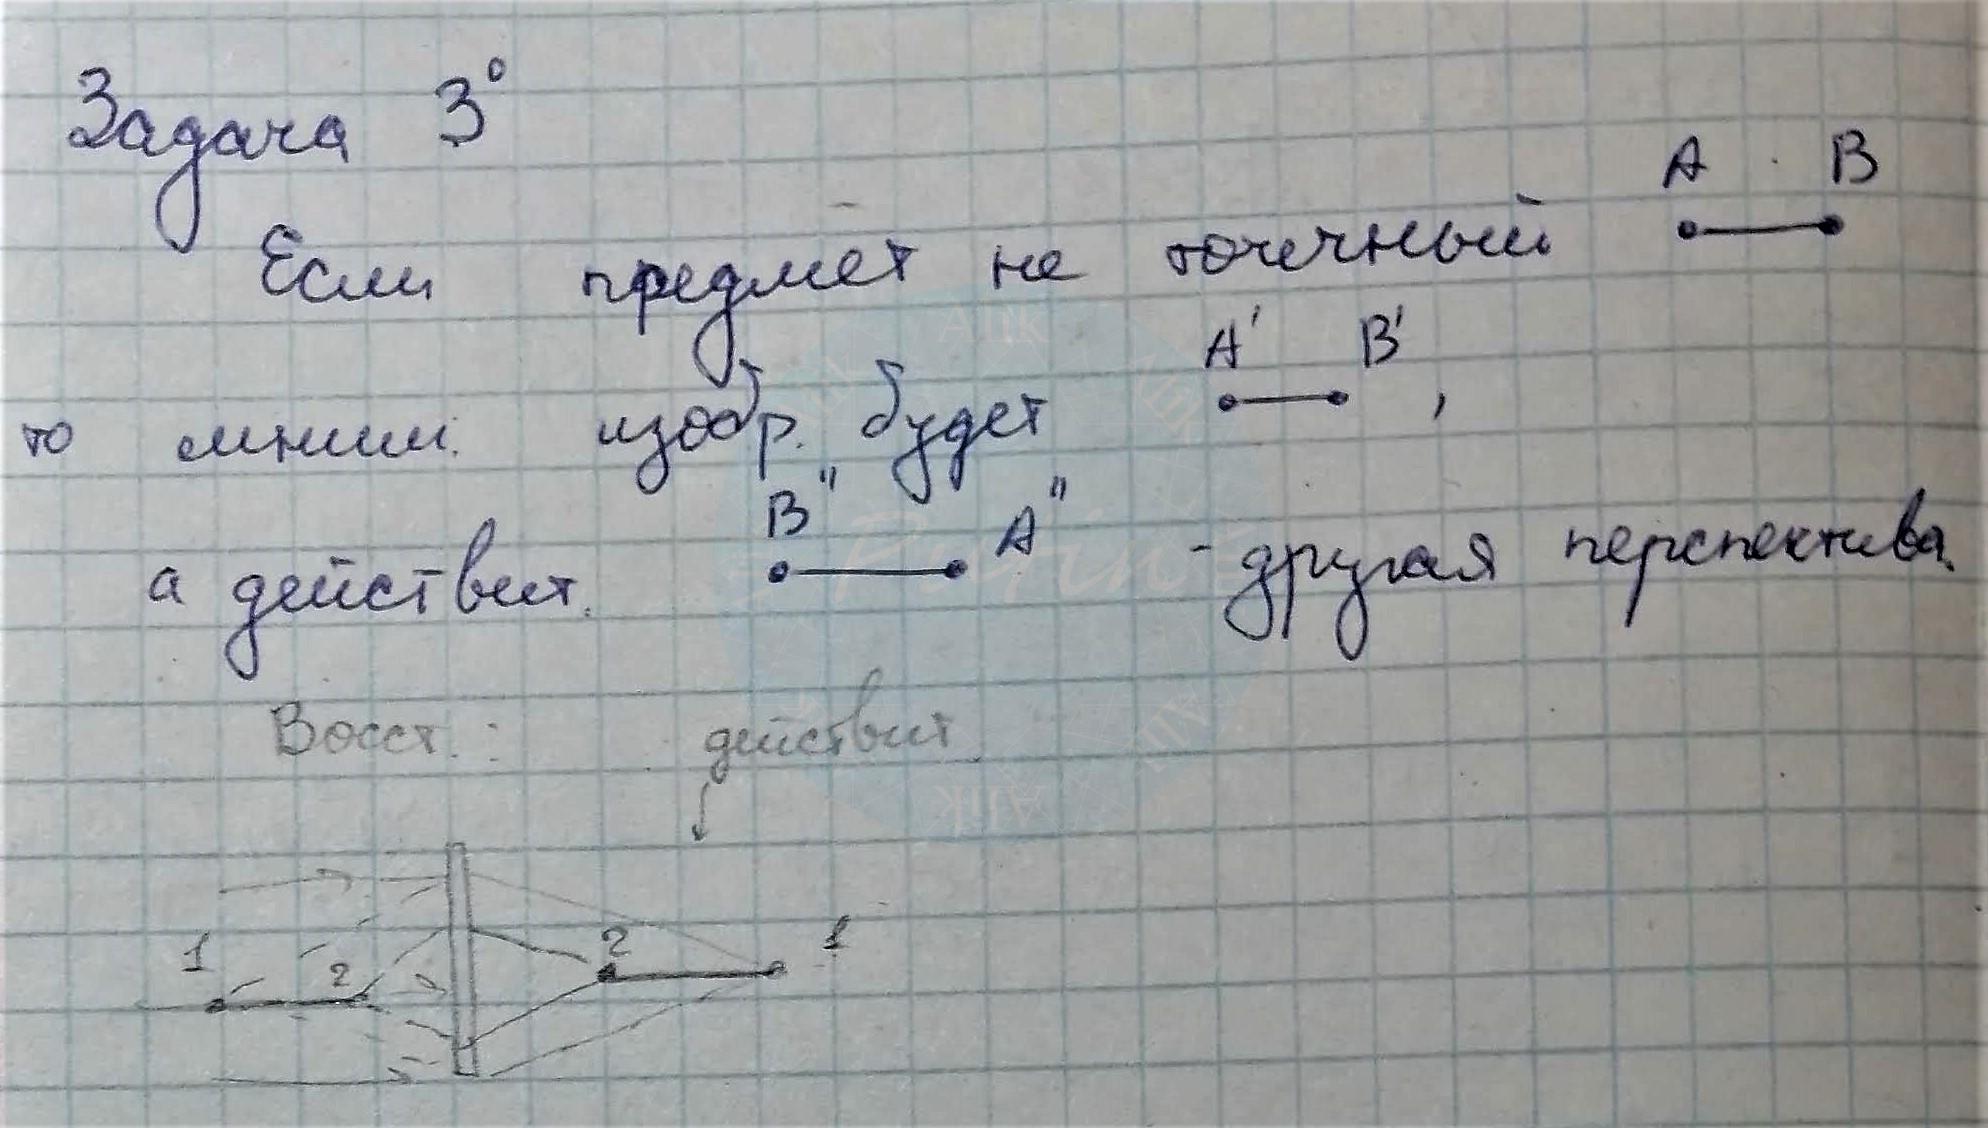 Задача 3°
A B
Если предмет не точечный
A' B'
то мним. изобр. будет ,
B" A"
а действит. - другая перспектива.
Восст.: действит.
1 2 2 1